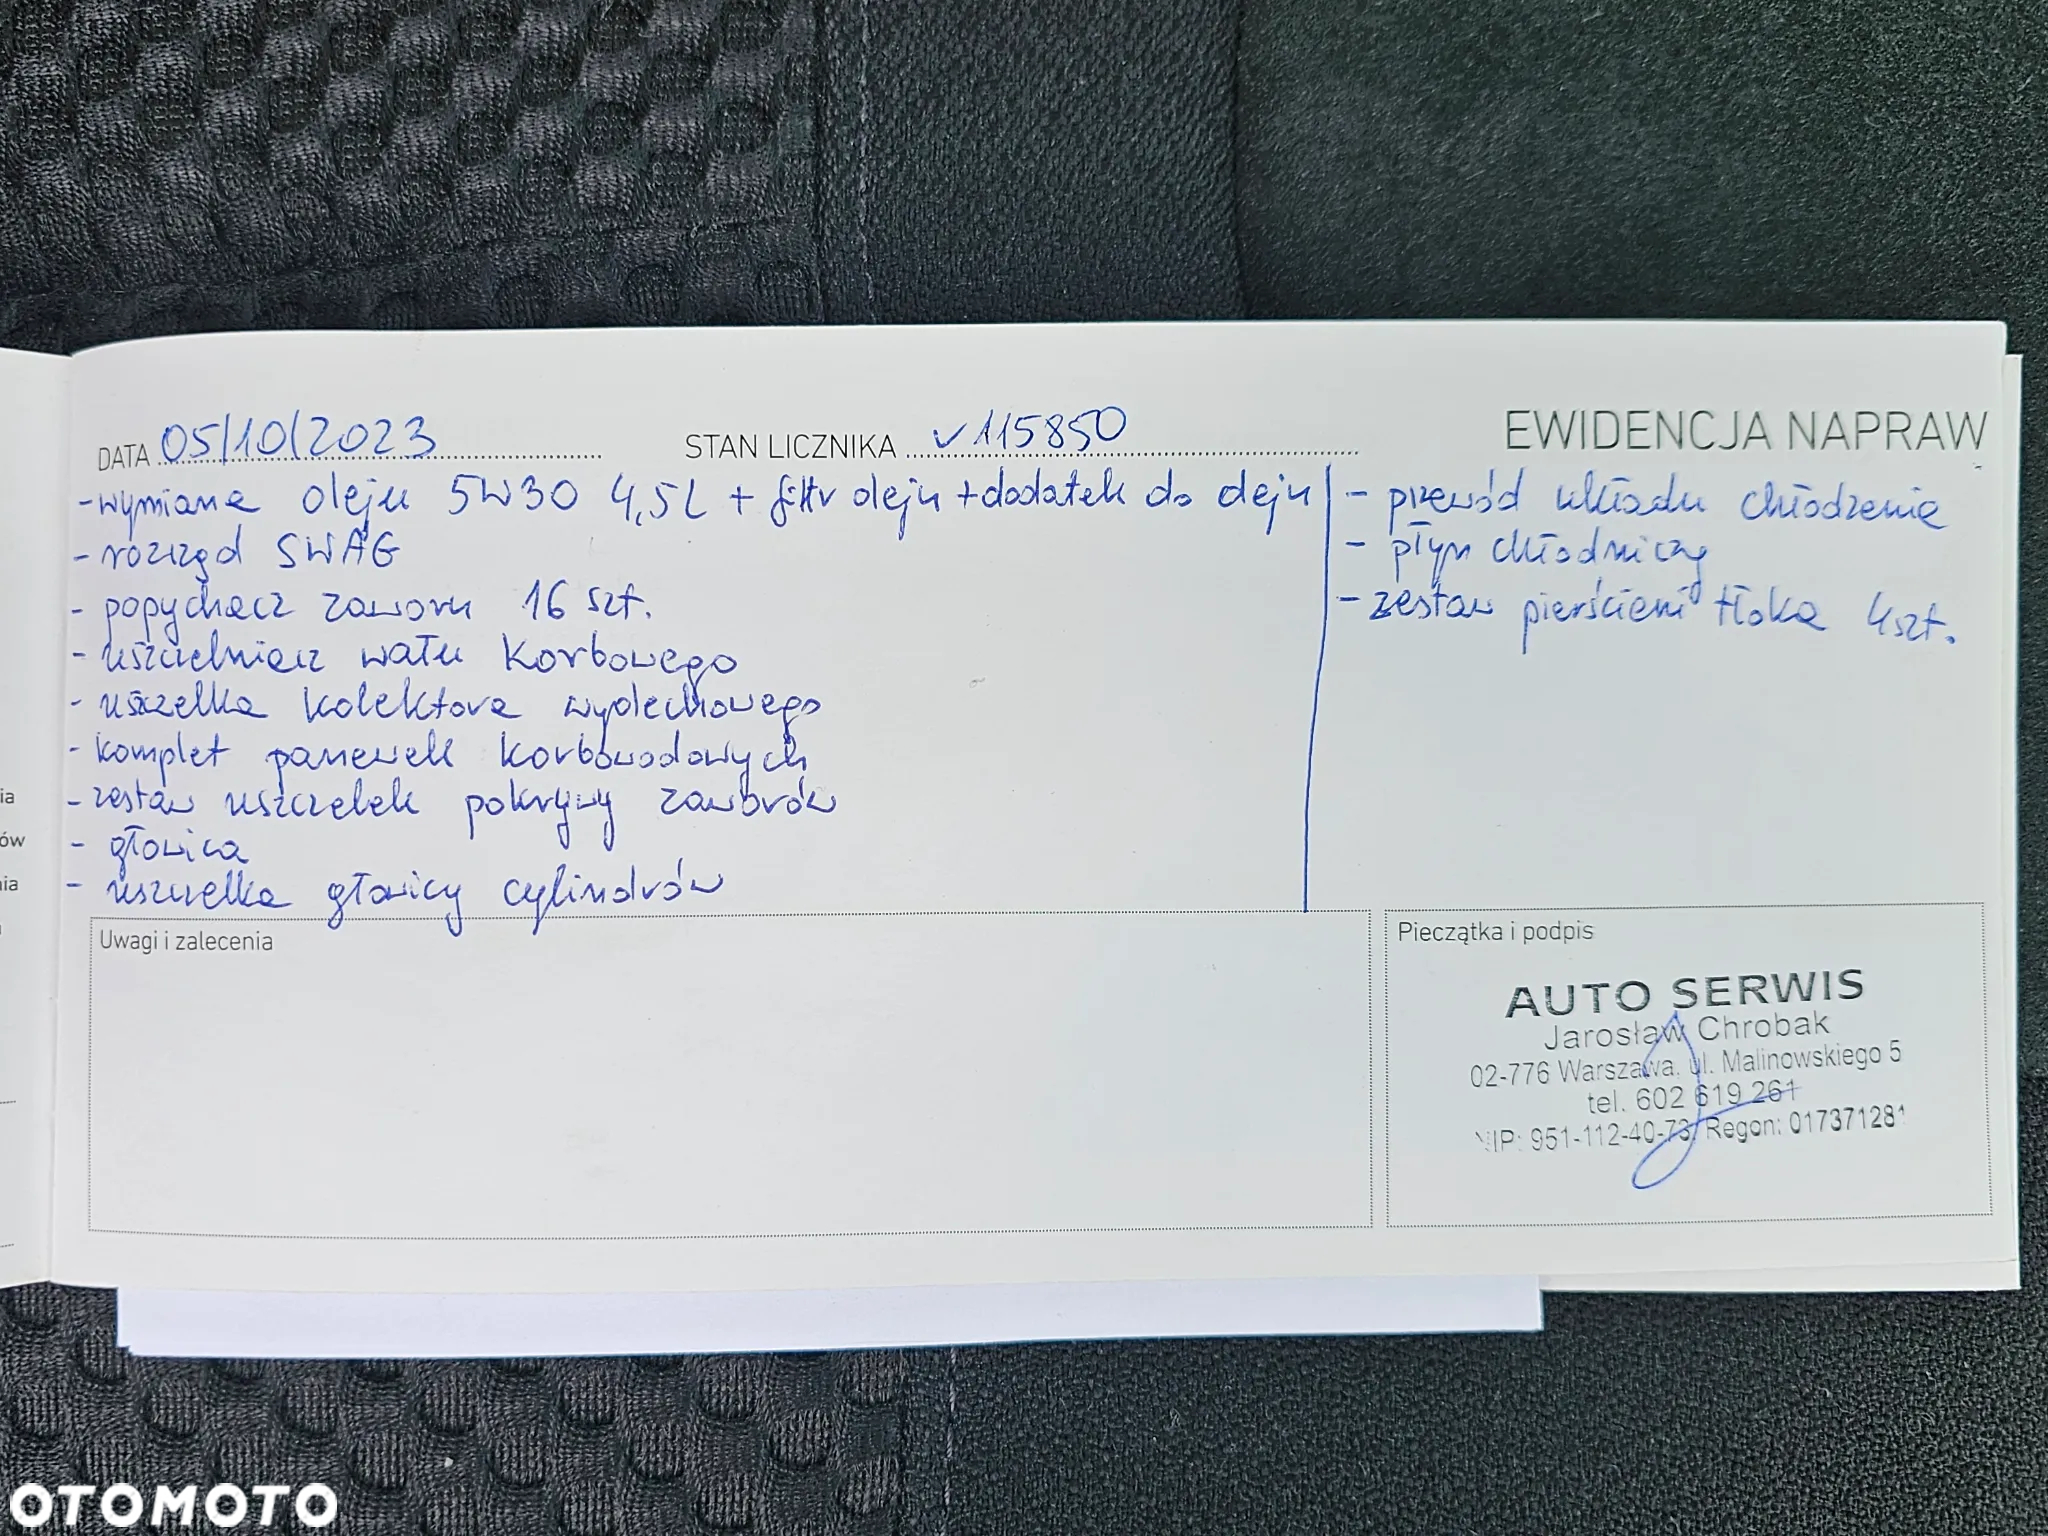 DATA 05/10/2023 STAN LICZNIKA v 115850 EWIDENCJA NAPRAW
- wymiana oleju 5W30 4,5L + filtr oleju + dodatek do oleju
- rozrząd SWAG
- popychacz zaworu 16 szt.
- uszczelniacz wału korbowego
- uszczelka kolektora wydechowego
- komplet panewek korbowodowych
- zestaw uszczelek pokrywy zaworów
- głowica
- uszczelka głowicy cylindrów
- przewód układu chłodzenia
- płyn chłodniczy
- zestaw pierścieni tłoka 4szt.
ia
ów
nia
Uwagi i zalecenia
Pieczątka i podpis
AUTO SERWIS
Jarosław Chrobak
02-776 Warszawa, ul. Malinowskiego 5
tel. 602 619 261
NIP: 951-112-40-73, Regon: 017371281
OTOMOTO